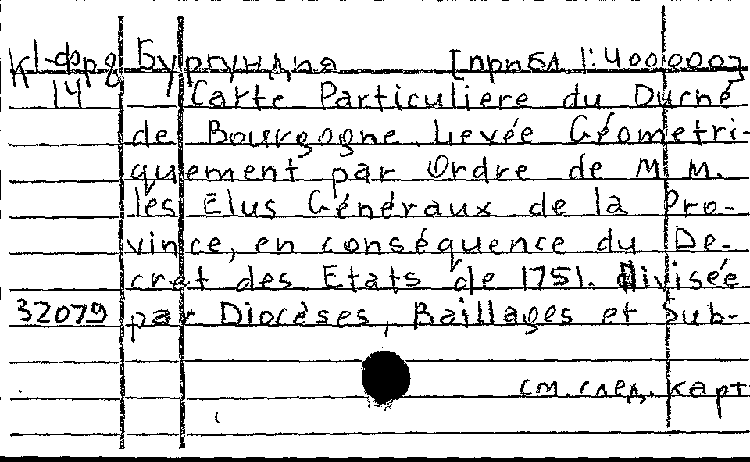 К1-Фр9 Бургундия [прибл 1:400000]
14 Carte Particuliere du Duché
de Bourgogne Levée Géometri-
quement par Ordre de M M.
les Elus Généraux de la Pro-
vince, en conséquence du De-
cret des Etats de 1751. divisée
32079 par Diocèses, Baillages et Sub-
см. след. карт